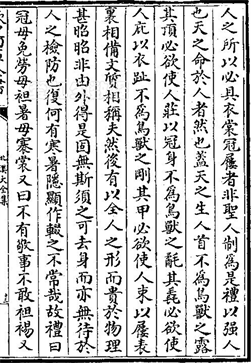 人之所以必具衣裳冠屨者非聖人制為是禮以强人
也天之命於人者然也蓋天之生人首不為鳥獸之露
其頂必欲使人莊以冠身不為鳥獸之氄其毳必欲使
人庇以衣趾不為鳥獸之剛其甲必欲使人束以屨表
裏相備文質相稱夫然後有以全人之形而貴於物理
甚昭昭非由外得是固無斯須之可去身而亦無待於
人之檢防也復何有寒暑隱顯作輟之不常哉故禮曰
冠毋免勞毋袒暑毋褰裳又曰不有敬事不敢袒裼又
北溪大全集